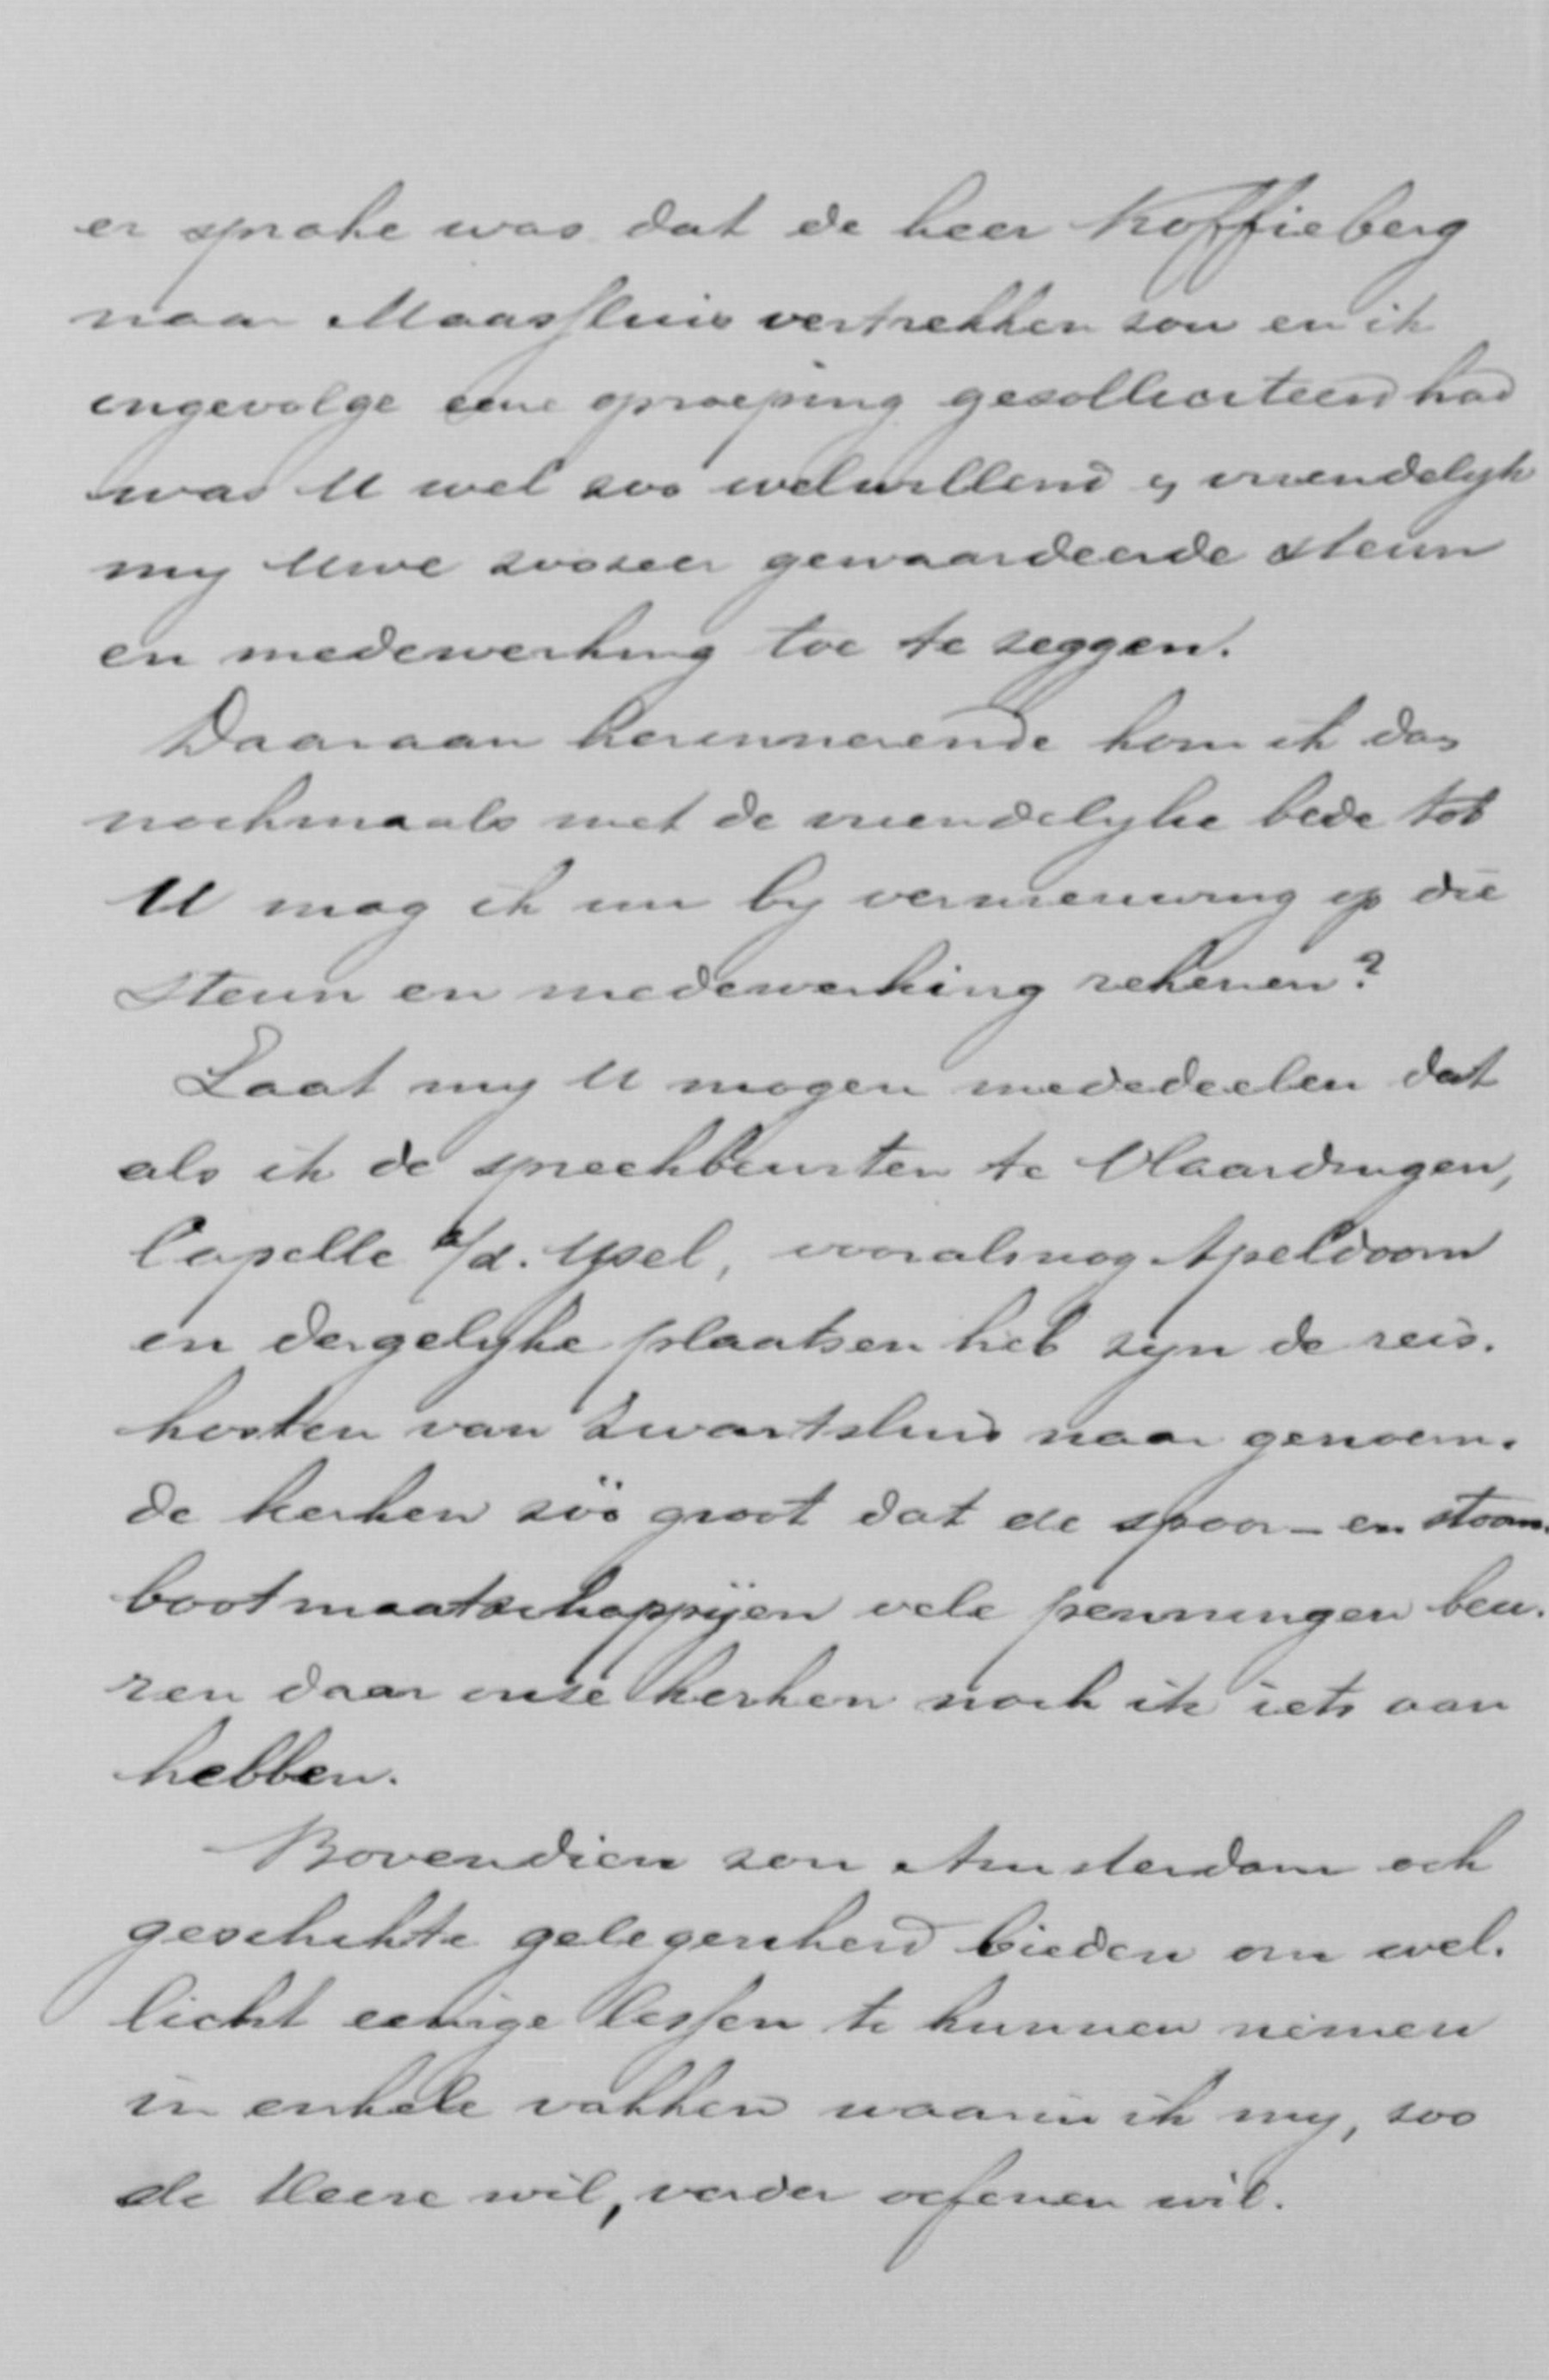 er sprake was dat de heer Koffieberg
naar Maassluis vertrekken zou en ik
ingevolge eene oproeping gesolliciteerd had
was U wel zoo welwillend & vriendelyk
my Uwe zoozeer gewaardeerde steun
en medewerking toe te zeggen.
Daaraan herinnerende kom ik dan
nochmaals met de vriendelyke bede tot
U mag ik nu by vernieuwing op die
steun en medewerking rekenen?
Laat my U mogen mededeelen dat
als ik de spreekbeurten te Vlaardingen,
Capelle a/d. Ysel, vooralsnog Apeldoorn
en dergelyke plaatsen heb zyn de reis.
kosten van Zwartsluis naar genoem.
de kerken zóó groot dat de spoor- en stoom.
bootmaatschappyen vele penningen beu.
ren daar onze kerken noch ik iets aan
hebben.
Bovendien zou Amsterdam ook
geschikte gelegenheid bieden om wel.
licht eenige lessen te kunnen nemen
in enkele vakken waarin ik my, zoo
de Heere wil, verder oefenen wil.